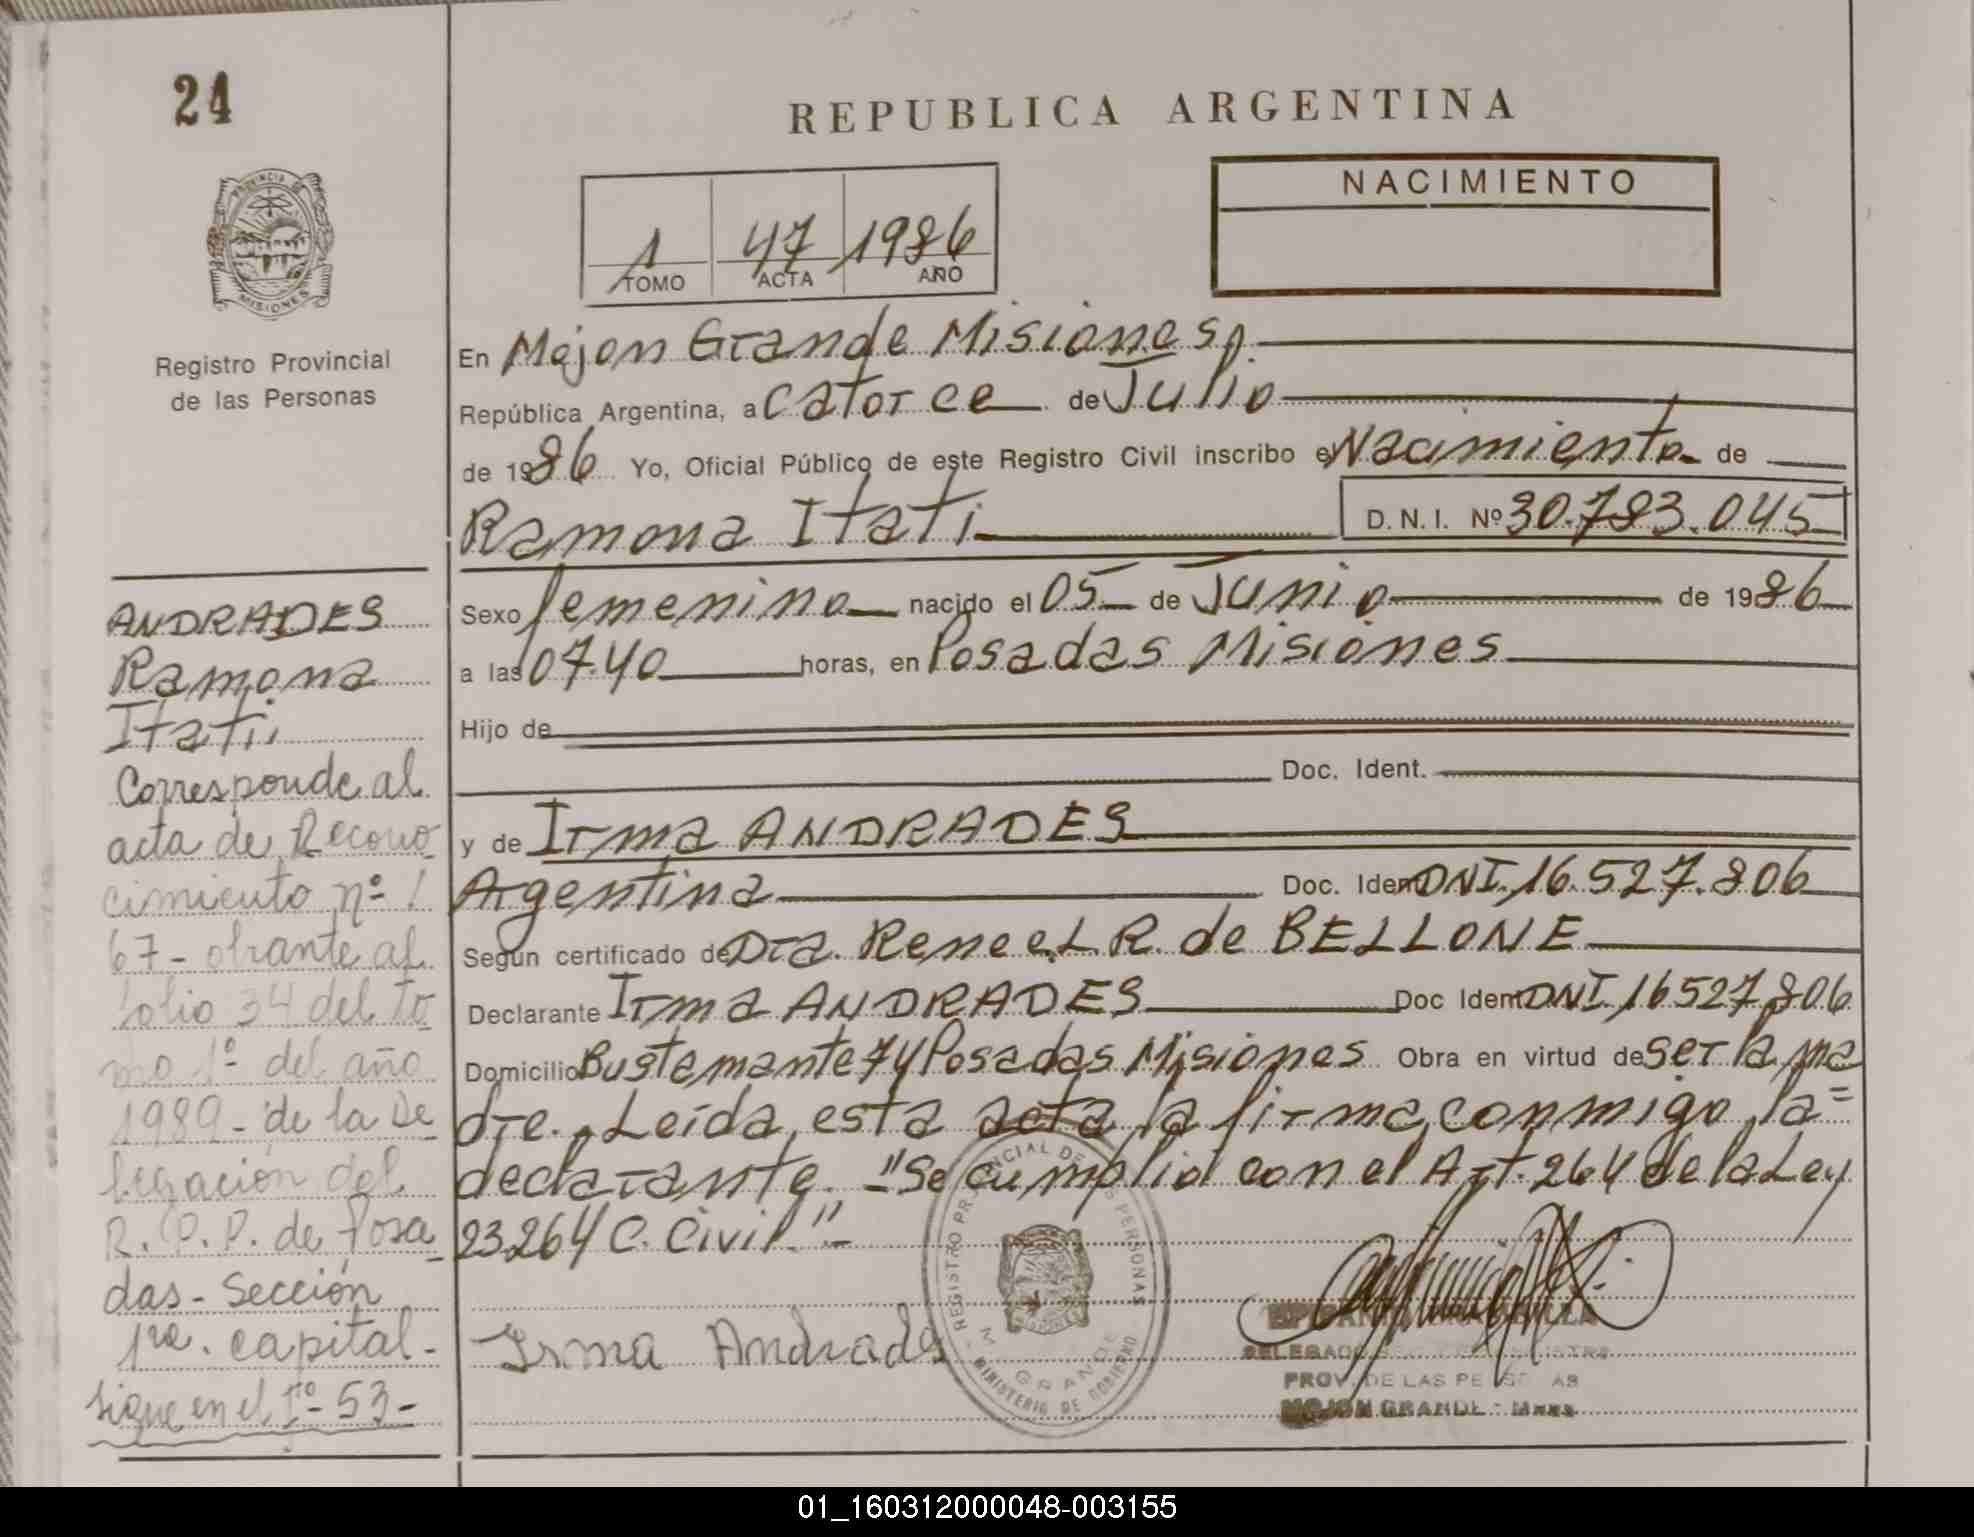 24
REPUBLICA ARGENTINA
PROVINCIA DE
MISIONES
1 47 1986
TOMO ACTA AÑO
NACIMIENTO
Registro Provincial
de las Personas
En Mojon Grande Misiones
República Argentina, a catorce de Julio
de 1986 Yo, Oficial Público de este Registro Civil inscribo el Nacimiento de
Ramona Itati D.N.I. Nº 30.783.045
Sexo femenino nacido el 05 de Junio de 1986
a las 07.40 horas, en Posadas Misiones
Hijo de
Doc. Ident.
y de Irma ANDRADES
Argentina Doc. Ident DNI. 16.527.806
Según certificado de Dra. Renee L. R. de BELLONE
Declarante Irma ANDRADES Doc Ident DNI. 16527.806
Domicilio Bustemante 74 Posadas Misiones Obra en virtud de ser la ma
dre. Leída esta acta la firma conmigo la=
declarante. "Se cumplió con el Art. 264 de la Ley
23264 C. Civil"
Irma Andrade
REGISTRO PROVINCIAL DE LAS PERSONAS
M. GRANDE
MINISTERIO DE GOBIERNO
PROV. DE LAS PERSONAS
MOJON GRANDE - Mnes
ANDRADES
Ramona
Itati.
Corresponde al
acta de Recono
cimiento nº 1
67 - obrante al
folio 34 del To
mo 1º del año
1989 - de la De
legación del
R. P. P. de Posa
das - Sección
1ra. capital -
sigue en el Fº 53 -
01_160312000048-003155